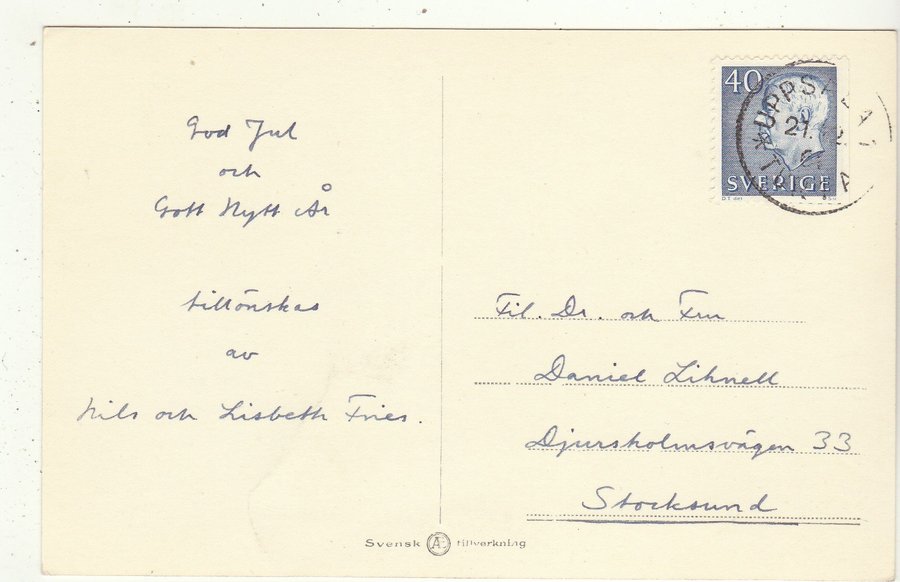 God Jul
och
Gott Nytt År
tillönskas
av
Nils och Lisbeth Fries.
40
SVERIGE
UPPSALA 1
21.
Fil. Dr. och Fru
Daniel Lihnell
Djursholmsvägen 33
Stocksund
Svensk Æ tillverkning